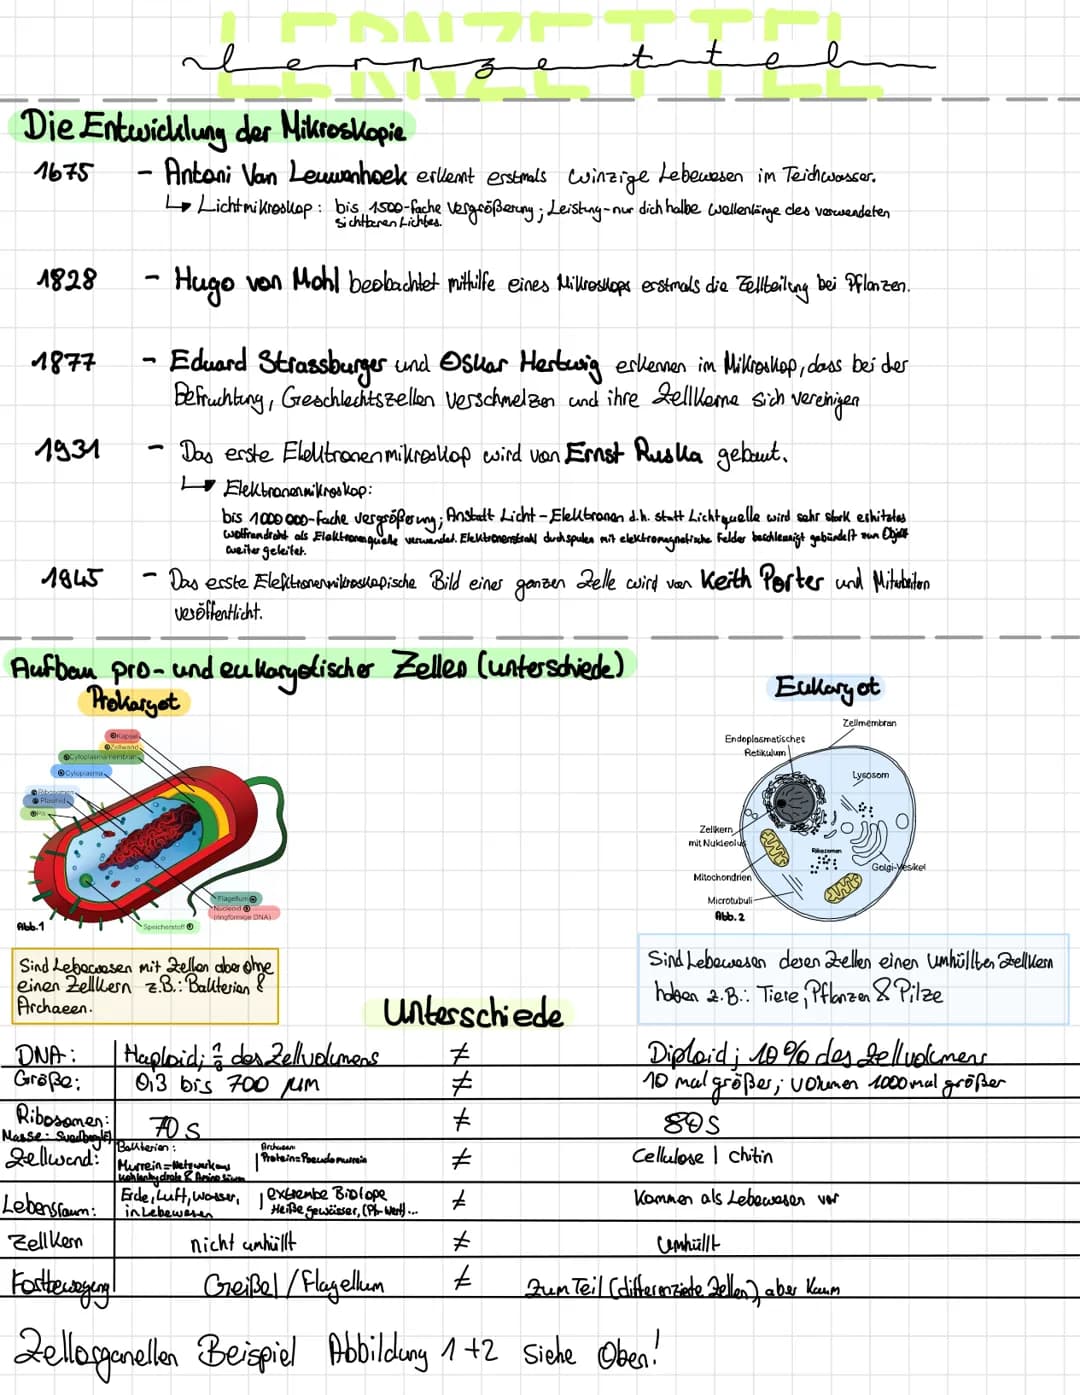 LERNZETTEL
lernzettel
Die Entwicklung der Mikroskopie
1675 - Antoni Van Leuwenhoek erkennt erstmals winzige Lebewesen im Teichwasser.
↳ Lichtmikroskop: bis 1500-fache Vergrößerung; Leistung-nur dich halbe Wellenlänge des verwendeten
sichtbaren Lichtes.
1828 - Hugo von Mohl beobachtet mithilfe eines Mikroskops erstmals die Zellteilung bei Pflanzen.
1877 - Eduard Strassburger und Oskar Hertwig erkennen im Mikroskop, dass bei der
Befruchtung, Geschlechtszellen verschmelzen und ihre Zellkerne sich vereinigen
1931 - Das erste Elektronenmikroskop wird von Ernst Ruska gebaut.
↳ Elektronenmikroskop:
bis 1000 000-fache vergrößerung; Anstatt Licht - Elektronen d.h. statt Lichtquelle wird sehr stark erhitztes
wolframdraht als Elektronenquelle verwendet. Elektronenstrahl durch spulen mit elektromagnetische Felder beschleunigt gebündelt zum Objekt
weiter geleitet.
1945 - Das erste Elektronenmikroskopische Bild einer ganzen Zelle wird von Keith Porter und Mitarbeiten
veröffentlicht.
Aufbau pro- und eukaryotischer Zellen (unterschiede)
Prokaryot
Eukaryot
Kapsel
Zellwand
Cytoplasmamembran
Cytoplasma
Ribosomen
Plasmid
Pili
Flagellum
Nucleoid
(ringförmige DNA)
Speicherstoff
Abb.1
Zellmembran
Endoplasmatisches
Retikulum
Lysosom
Zellkern
mit Nukleolus
Ribosomen
Golgi-Vesikel
Mitochondrien
Microtubuli
Abb.2
Sind Lebewesen mit Zellen aber ohne
einen Zellkern z.B.: Bakterien &
Archaeen.
Sind Lebewesen deren Zellen einen umhüllten Zellkern
haben z.B.: Tiere, Pflanzen & Pilze
Unterschiede
DNA: Haploid; des Zellvolumens ≠ Diploid; 10% des Zellvolumens
Größe: 0,3 bis 700 µm ≠ 10 mal größer; volumen 1000 mal größer
Ribosomen: 70 S ≠ 80S
Masse: Svedberg(S)
Zellwand: Bakterien: Murein = Netzwerk aus Kohlenhydrate & Aminosäuren | Archaeen Protein = Pseudomurein ≠ Cellulose | chitin
Lebensraum: Erde, Luft, Wasser, in Lebewesen | extreme Biotope Heiße gewässer, (Ph-Wert)... ≠ Kommen als Lebewesen vor
Zellkern nicht umhüllt ≠ Umhüllt
Fortbewegung Geißel / Flagellum ≠ Zum Teil (differenzierte Zellen), aber kaum
Zellorganellen Beispiel Abbildung 1+2 Siehe Oben!